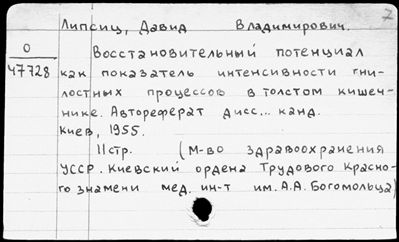 7
Липсиц, Давид Владимирович.
О
47728
Восстановительный потенциал
как показатель интенсивности гни-
лостных процессов в толстом кишеч-
нике. Автореферат дисс... канд.
Киев, 1955.
11стр. (М-во здравоохранения
УССР. Киевский ордена Трудового Красно-
го знамени мед. ин-т им. А.А. Богомольца)